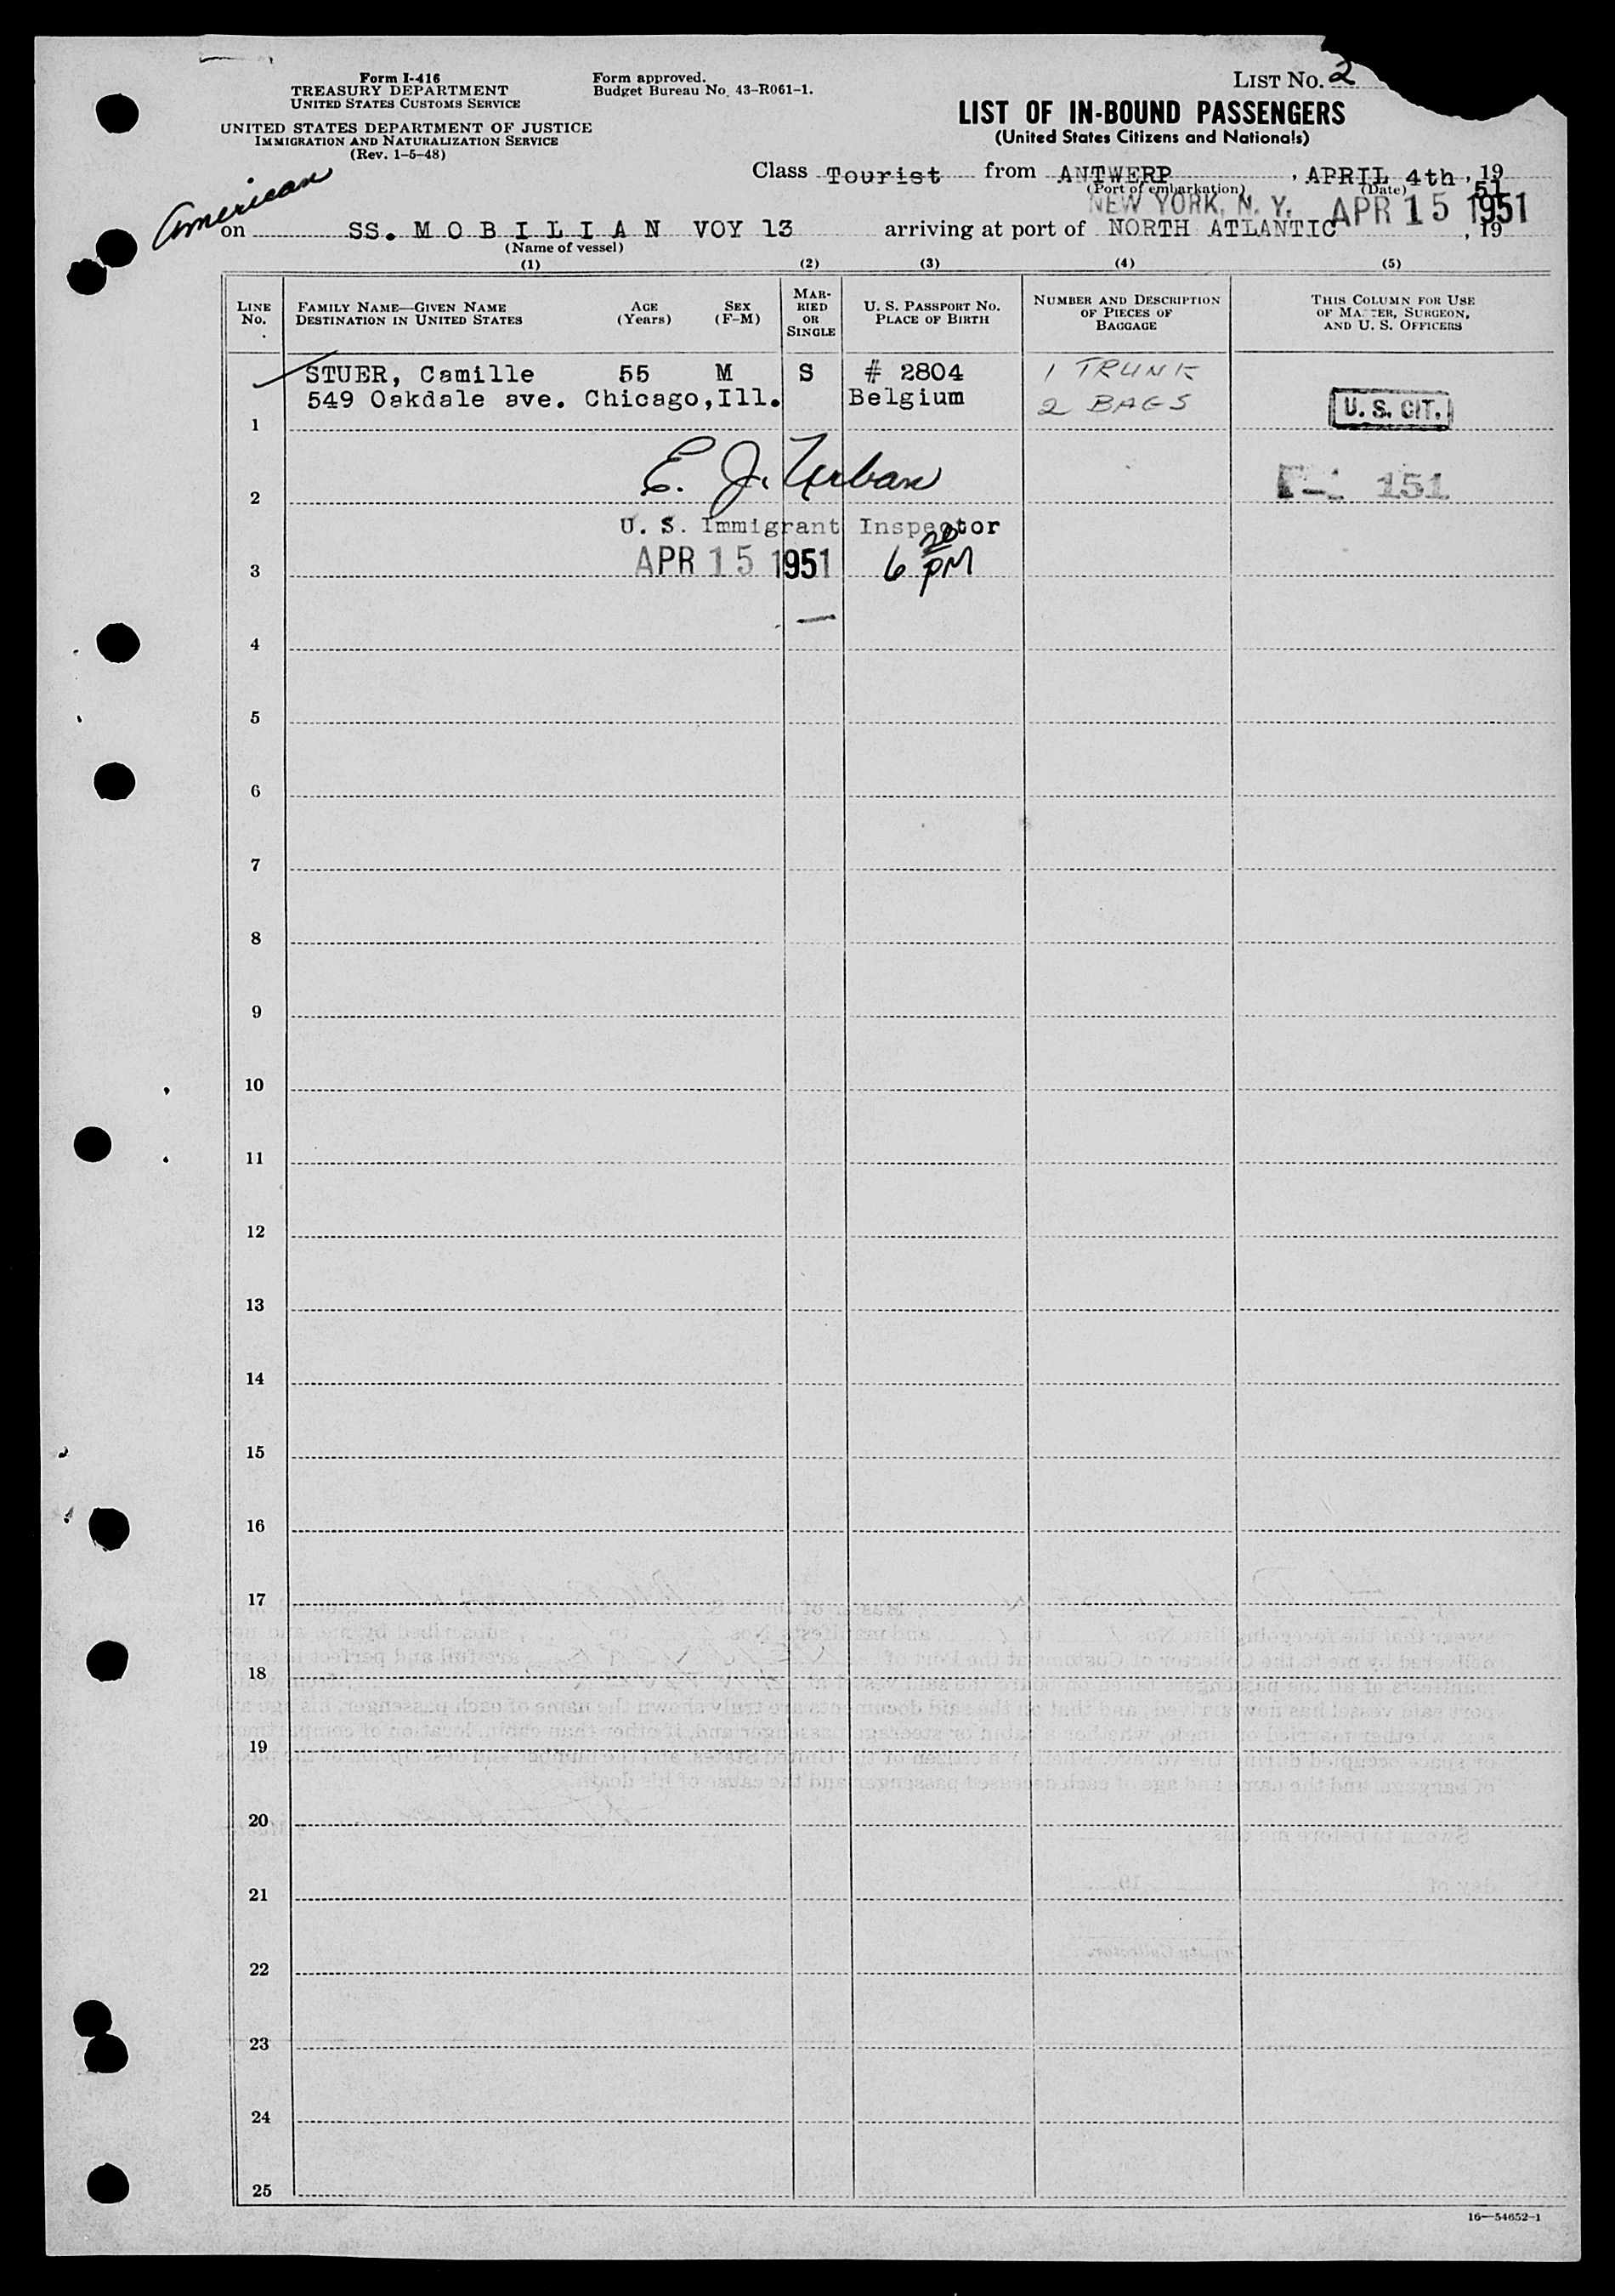 Form I-416
TREASURY DEPARTMENT
UNITED STATES CUSTOMS SERVICE
UNITED STATES DEPARTMENT OF JUSTICE
IMMIGRATION AND NATURALIZATION SERVICE
(Rev. 1-5-48)
Form approved.
Budget Bureau No. 43-R061-1.
LIST No. 2
LIST OF IN-BOUND PASSENGERS
(United States Citizens and Nationals)
Class Tourist from ANTWERP, APRIL 4th, 19 51
(Port of embarkation) (Date)
NEW YORK, N. Y. APR 15 1951
American
on SS. M O B I L I A N VOY 13 arriving at port of NORTH ATLANTIC, 19
(Name of vessel)
(1) (2) (3) (4) (5)
LINE No.
FAMILY NAME—GIVEN NAME
DESTINATION IN UNITED STATES
AGE (Years)
SEX (F-M)
MARRIED OR SINGLE
U. S. PASSPORT No.
PLACE OF BIRTH
NUMBER AND DESCRIPTION
OF PIECES OF
BAGGAGE
THIS COLUMN FOR USE
OF MASTER, SURGEON,
AND U. S. OFFICERS
STUER, Camille 55 M S # 2804 1 TRUNK
549 Oakdale ave. Chicago,Ill. Belgium 2 BAGS U. S. CIT.
1
E. J. Urban 151
2
U. S. Immigrant Inspector
APR 15 1951 6 20 PM
3
4
5
6
7
8
9
10
11
12
13
14
15
16
17
18
19
20
21
22
23
24
25
16—54652-1